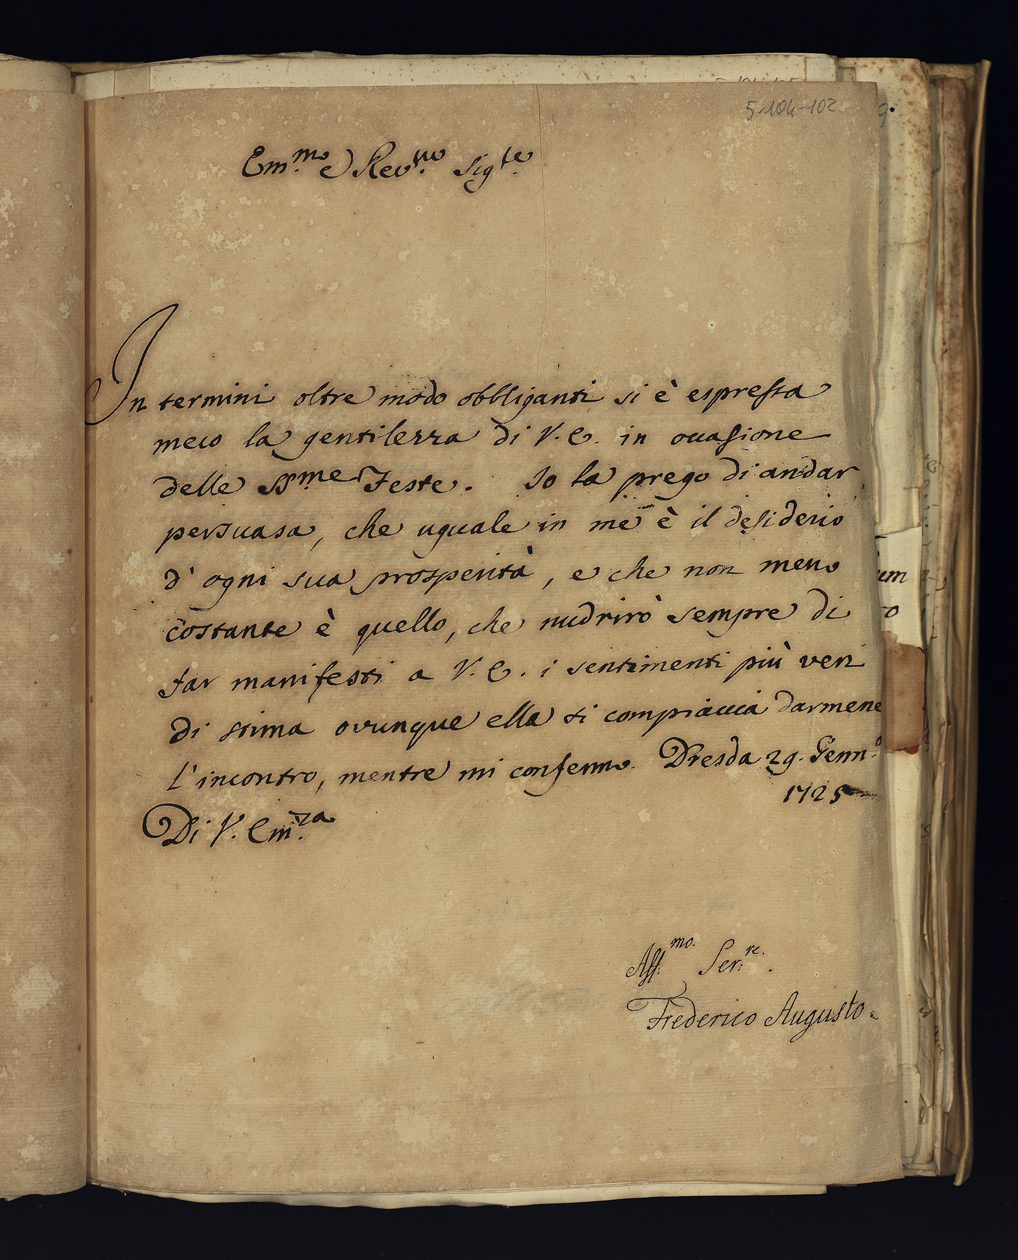 5-104-102
Em.mo e Rev.mo Sig.re
In termini oltre modo obbliganti si è espressa
meco la gentilezza di V. E. in occasione
delle SS.me Feste. Io la prego di andar
persuasa, che uguale in me è il desiderio
d'ogni sua prosperità, e che non meno
costante è quello, che nudrirò sempre di
far manifesti a V. E. i sentimenti più veri
di stima ovunque ella si compiaccia darmene
l'incontro, mentre mi confermo. Dresda 29. Genn.o
1725
Di V. Em.za
Aff.mo Ser.re.
Frederico Augusto.